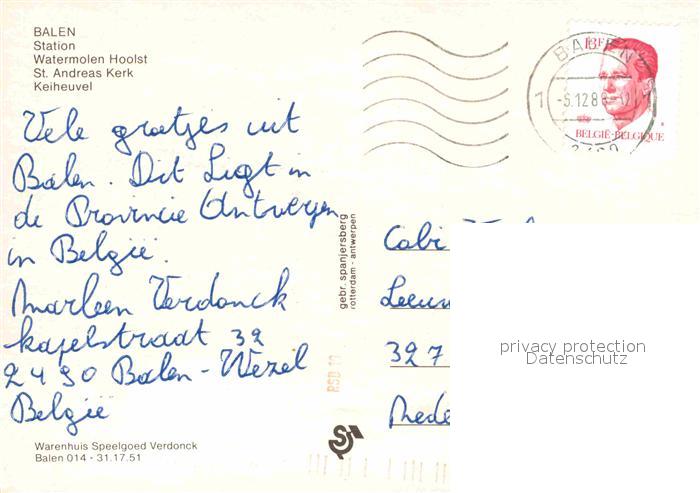 BALEN
Station
Watermolen Hoolst
St. Andreas Kerk
Keiheuvel
Vele groetjes uit
Balen. Dit Ligt in
de Provincie Antwerpen
in België.
Marleen Verdonck
kapelstraat 32
2490 Balen-Wezel
België
Warenhuis Speelgoed Verdonck
Balen 014 - 31.17.51
gebr. spanjersberg
rotterdam - antwerpen
BALEN
-5.12.88
BELGIË-BELGIQUE
327
privacy protection
Datenschutz